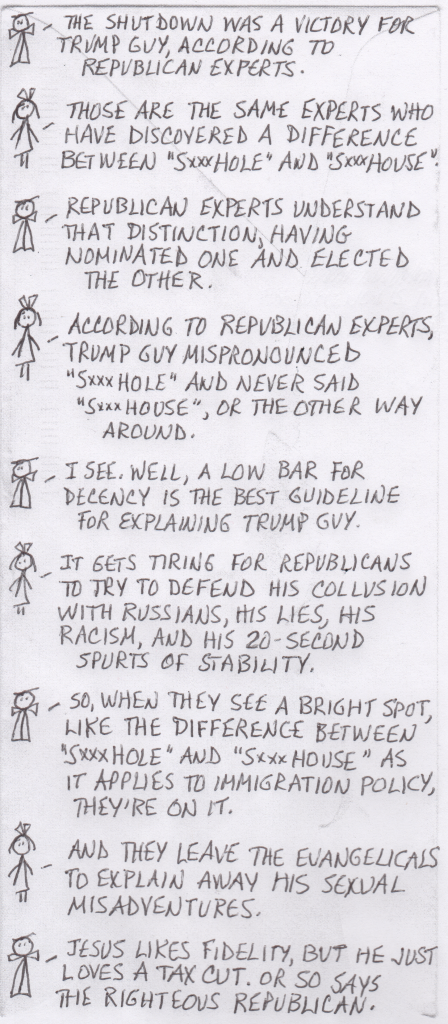 THE SHUTDOWN WAS A VICTORY FOR
TRUMP GUY, ACCORDING TO
REPUBLICAN EXPERTS.
THOSE ARE THE SAME EXPERTS WHO
HAVE DISCOVERED A DIFFERENCE
BETWEEN "SxxxHOLE" AND "SxxxHOUSE".
REPUBLICAN EXPERTS UNDERSTAND
THAT DISTINCTION, HAVING
NOMINATED ONE AND ELECTED
THE OTHER.
ACCORDING TO REPUBLICAN EXPERTS,
TRUMP GUY MISPRONOUNCED
"SxxxHOLE" AND NEVER SAID
"SxxxHOUSE", OR THE OTHER WAY
AROUND.
I SEE. WELL, A LOW BAR FOR
DECENCY IS THE BEST GUIDELINE
FOR EXPLAINING TRUMP GUY.
IT GETS TIRING FOR REPUBLICANS
TO TRY TO DEFEND HIS COLLUSION
WITH RUSSIANS, HIS LIES, HIS
RACISM, AND HIS 20-SECOND
SPURTS OF STABILITY.
SO, WHEN THEY SEE A BRIGHT SPOT,
LIKE THE DIFFERENCE BETWEEN
"SxxxHOLE" AND "SxxxHOUSE" AS
IT APPLIES TO IMMIGRATION POLICY,
THEY'RE ON IT.
AND THEY LEAVE THE EVANGELICALS
TO EXPLAIN AWAY HIS SEXUAL
MISADVENTURES.
JESUS LIKES FIDELITY, BUT HE JUST
LOVES A TAX CUT. OR SO SAYS
THE RIGHTEOUS REPUBLICAN.